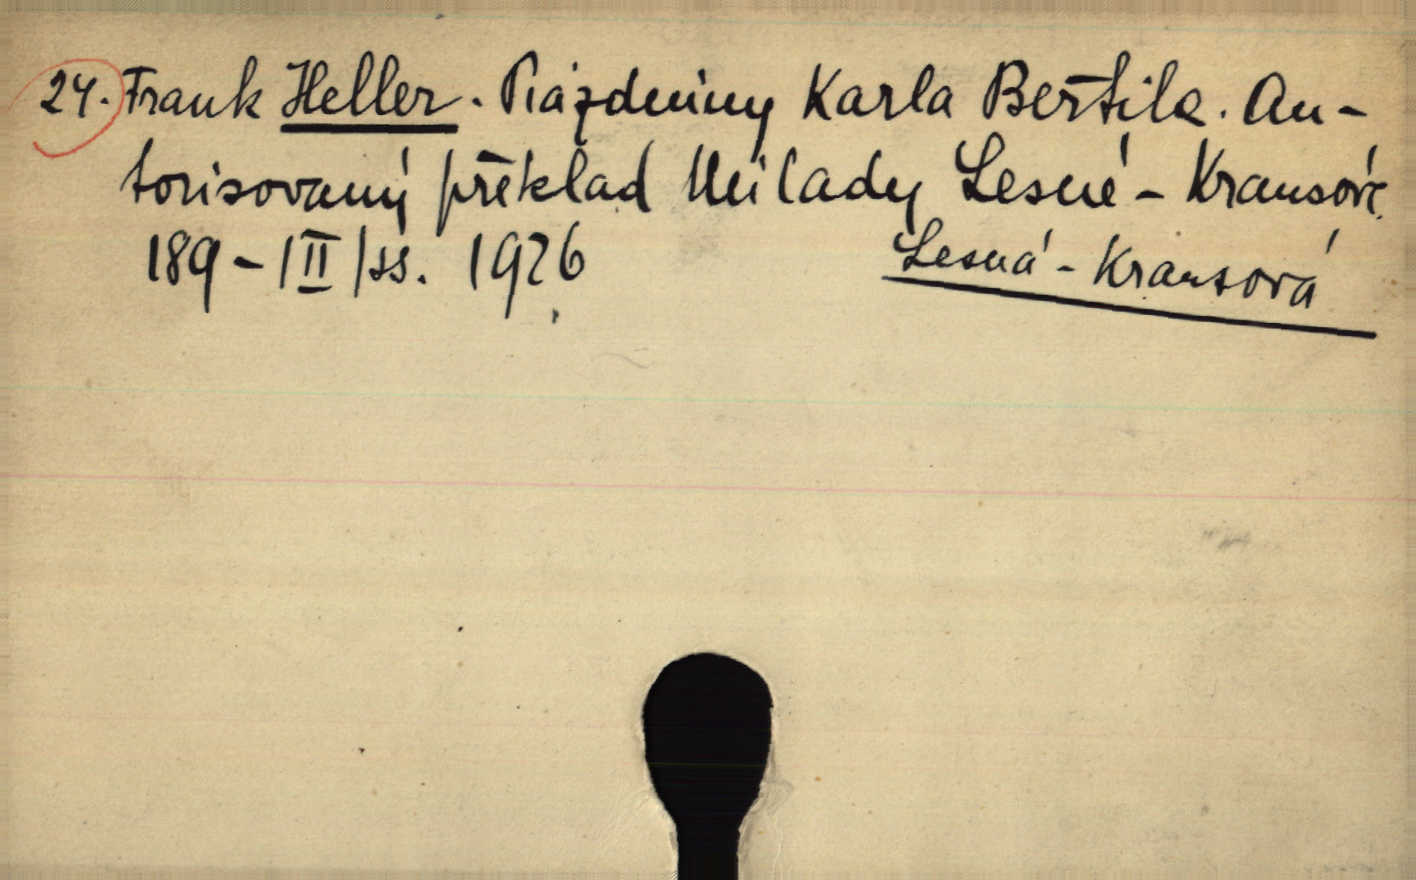 24. Frank Heller. Prázdniny Karla Bertila. Au-
torisovaný překlad Milady Lesné - Krausové.
189 - |II| ss. 1926
Lesná - Krausová